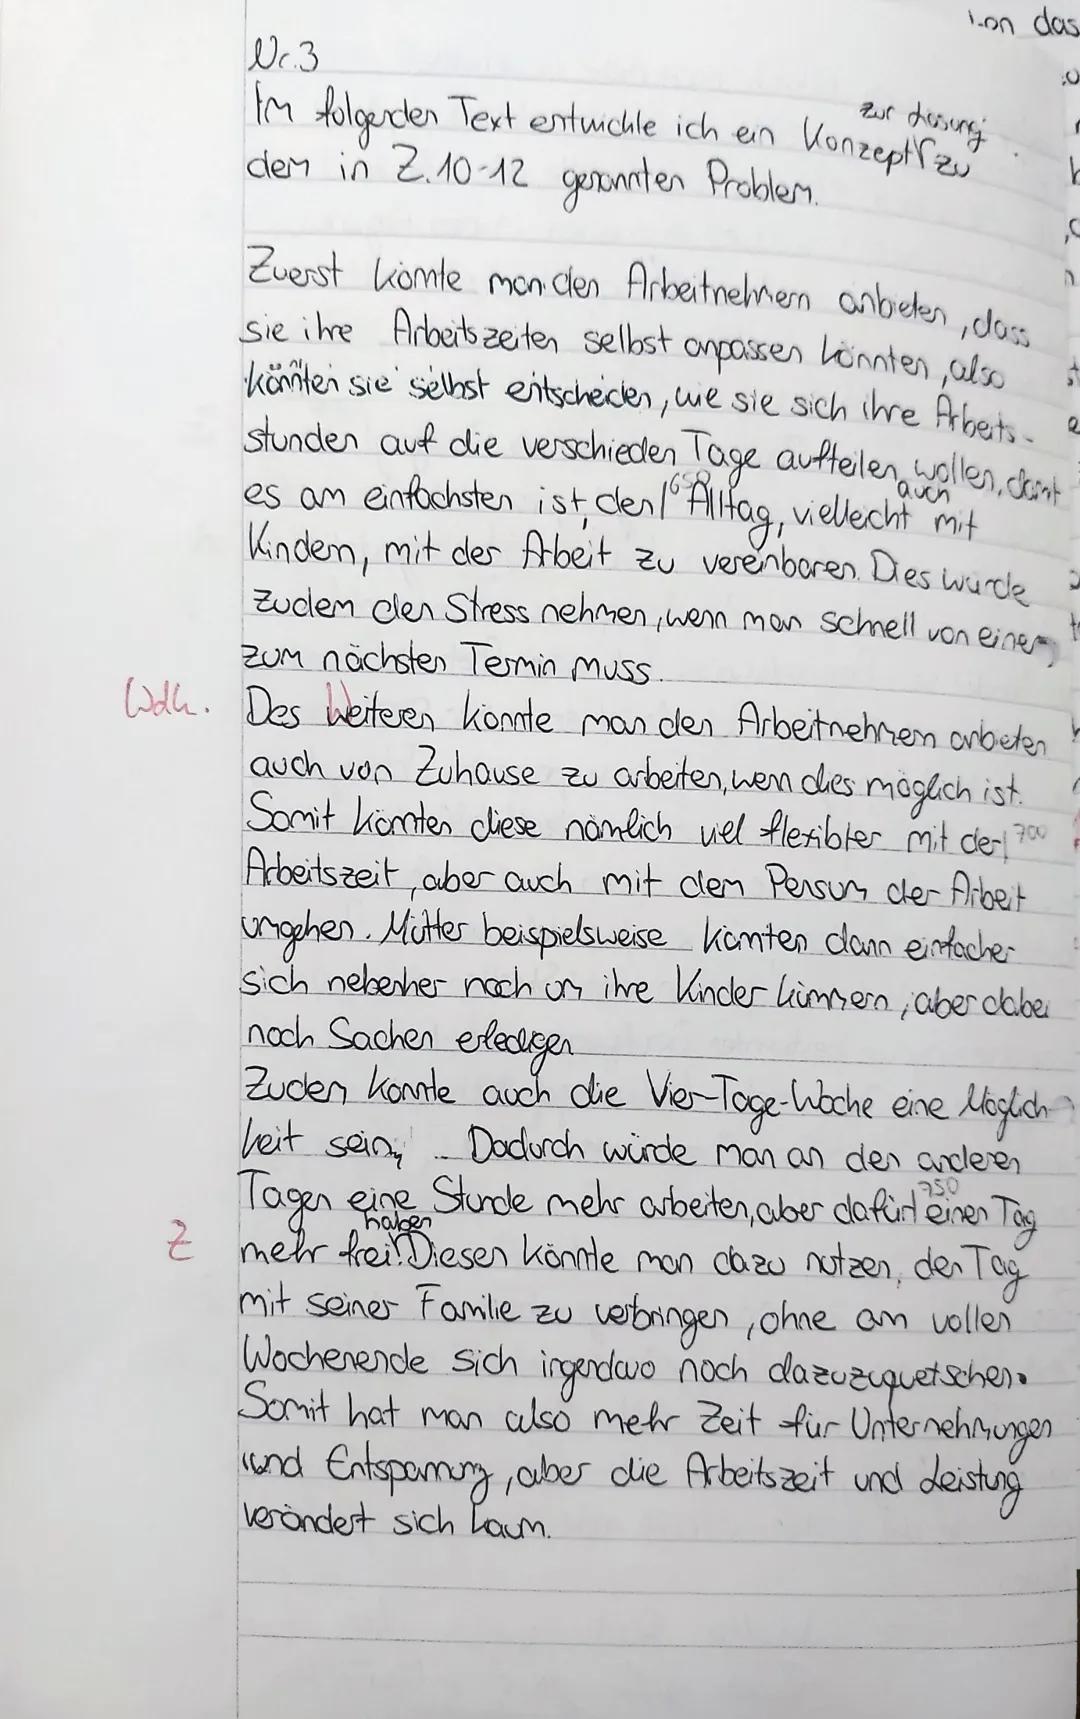 von das
Nr.3
Im folgenden Text entwickle ich ein Konzept zur Lösung zu
dem in Z.10-12 genannten Problem.
Zuerst könnte man den Arbeitnehmern anbieten, dass
sie ihre Arbeitszeiten selbst anpassen könnten, also
könnten sie selbst entscheiden, wie sie sich ihre Arbeits-
stunden auf die verschieden Tage aufteilen wollen, damit
es am einfachsten ist, den | 650 Alltag, vielleicht auch mit
Kindern, mit der Arbeit zu vereinbaren. Dies würde
zudem den Stress nehmen, wenn man schnell von einem
zum nächsten Termin muss.
Wdh. Des Weiteren könnte man den Arbeitnehmern anbieten
auch von Zuhause zu arbeiten, wenn dies möglich ist.
Somit könnten diese nämlich viel flexibler mit der | 700
Arbeitszeit, aber auch mit dem Pensum der Arbeit
umgehen. Mütter beispielsweise könnten dann einfacher
sich nebenher noch um ihre Kinder kümmern, aber dabei
noch Sachen erledigen
Zudem könnte auch die Vier-Tage-Woche eine Möglich-
keit sein. Dadurch würde man an den anderen
Tagen eine Stunde mehr arbeiten, aber dafür | 750 einen Tag
Z mehr frei haben. Diesen könnte man dazu nutzen, den Tag
mit seiner Familie zu verbringen, ohne am vollen
Wochenende sich irgendwo noch dazuzuquetschen.
Somit hat man also mehr Zeit für Unternehmungen
und Entspannung, aber die Arbeitszeit und Leistung
verändert sich kaum.